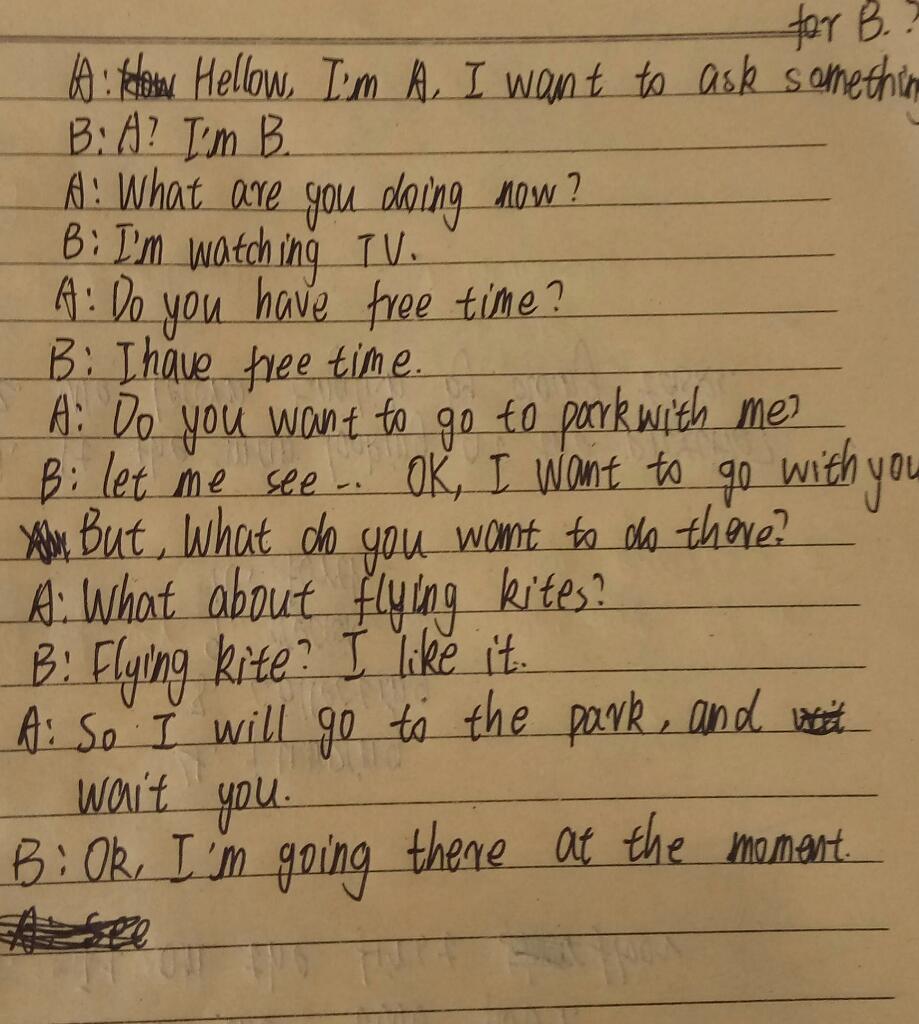 for B.?
A: How Hellow, I'm A, I want to ask somethin
B: A? I'm B.
A: What are you doing now?
B: I'm watching TV.
A: Do you have free time?
B: I have free time.
A: Do you want to go to park with me?
B: let me see... OK, I want to go with you
But, What do you want to do there?
A: What about flying kites?
B: Flying kite? I like it.
A: So I will go to the park, and
wait you.
B: Ok, I'm going there at the moment.
A: see